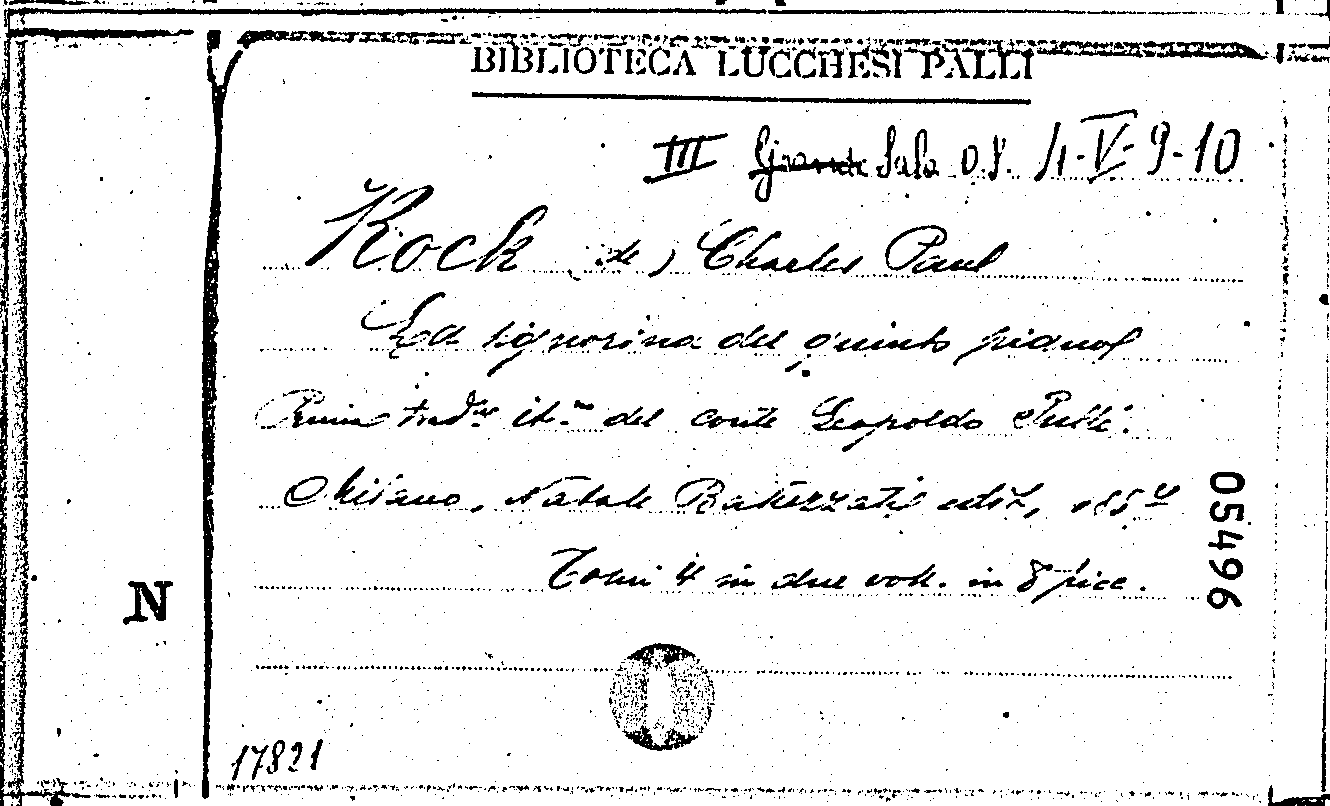 BIBLIOTECA LUCCHESI PALLI
III Grande Sala 4-V-9-10
Kock (de) Charles Paul
La signorina del quinto piano
Prima trad.ne it.na del conte Leopoldo Pullè.
Milano, Natale Battezzati edit., 185
Tomi 4 in due voll. in 8° picc.
05496
N
17821